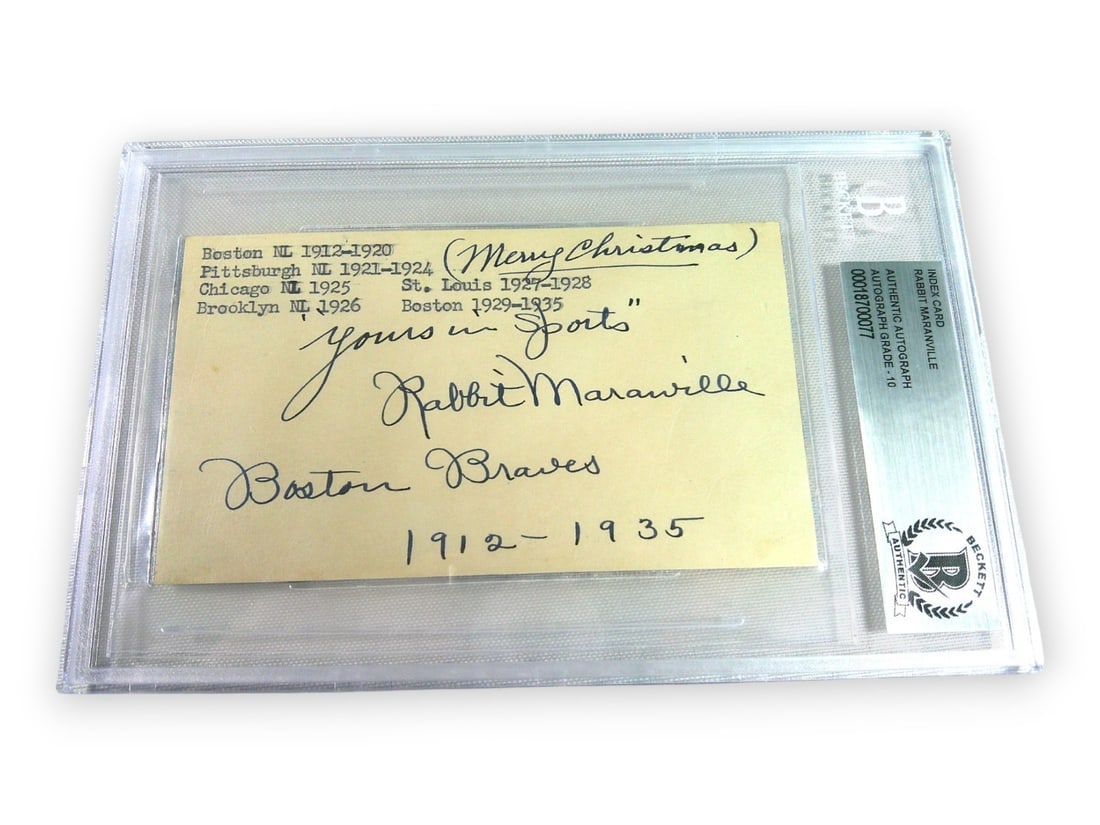 Boston NL 1912-1920
Pittsburgh NL 1921-1924 (Merry Christmas)
Chicago NL 1925 St. Louis 1927-1928
Brooklyn NL 1926 Boston 1929-1935
"Yours in Sports"
Rabbit Maranville
Boston Braves
1912-1935
INDEX CARD
RABBIT MARANVILLE
AUTHENTIC AUTOGRAPH
AUTOGRAPH GRADE - 10
00018700077
BECKETT
B
AUTHENTIC